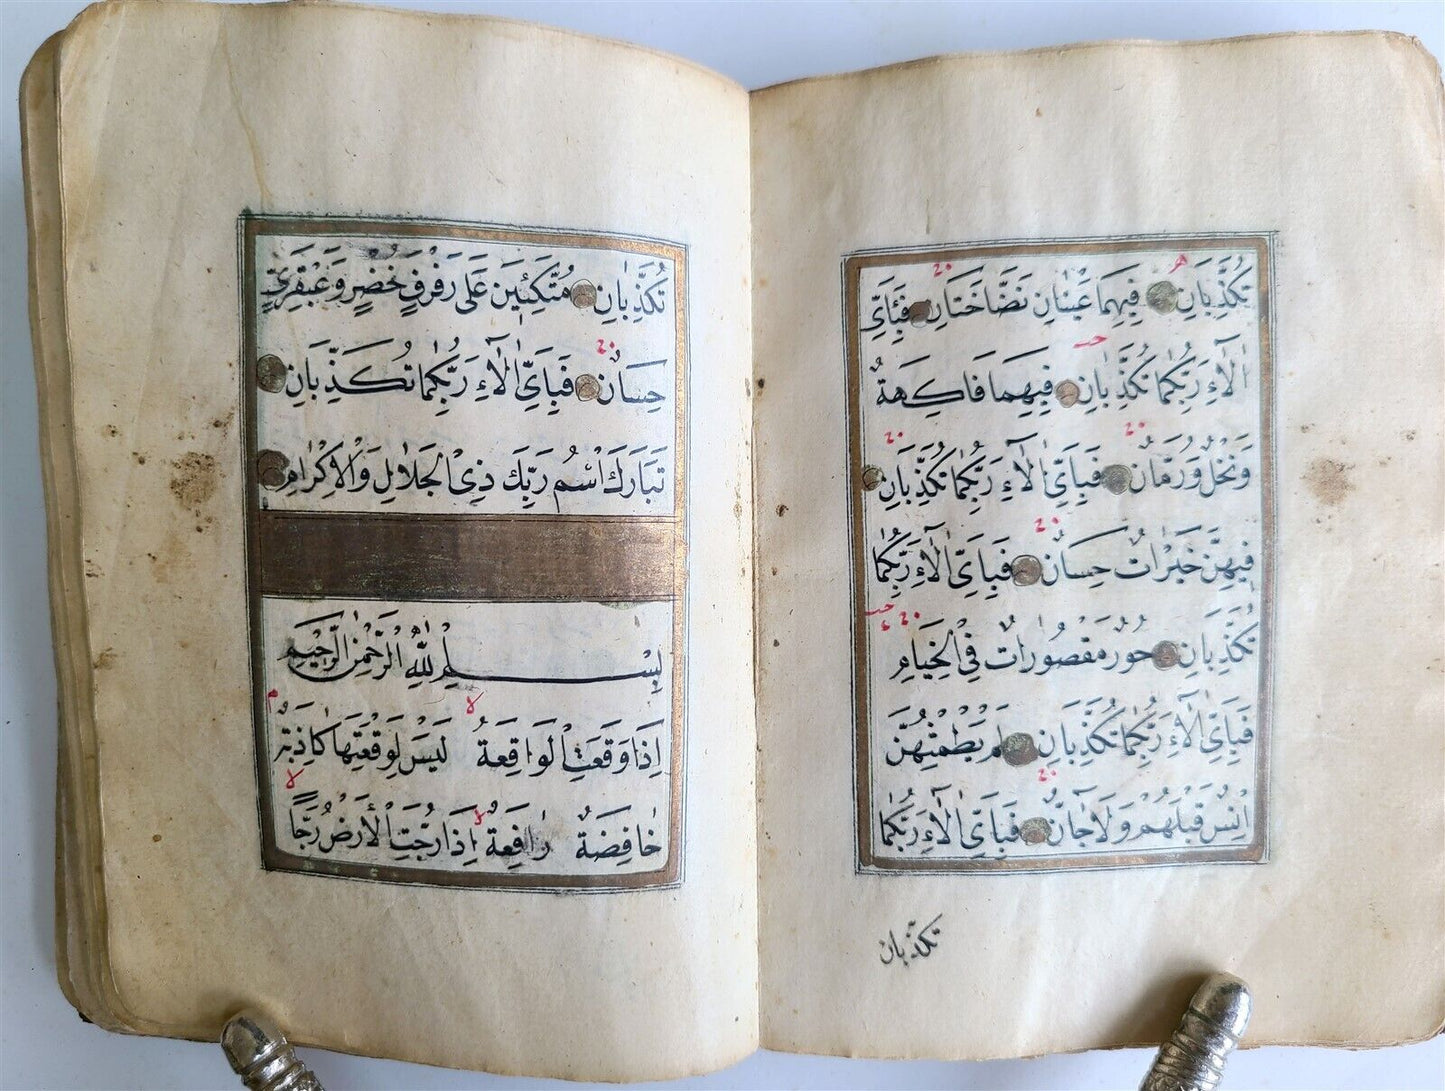 تُكَذِّبَانِ فِيهِمَا عَيْنَانِ نَضَّاخَتَانِ فَبِأَيِّ
اٰلَاءِ رَبِّكُمَا تُكَذِّبَانِ فِيهِمَا فَاكِهَةٌ
وَنَخْلٌ وَرُمَّانٌ فَبِأَيِّ اٰلَاءِ رَبِّكُمَا تُكَذِّبَانِ
فِيهِنَّ خَيْرَاتٌ حِسَانٌ فَبِأَيِّ اٰلَاءِ رَبِّكُمَا
تُكَذِّبَانِ حُورٌ مَقْصُورَاتٌ فِي الْخِيَامِ
فَبِأَيِّ اٰلَاءِ رَبِّكُمَا تُكَذِّبَانِ لَمْ يَطْمِثْهُنَّ
اِنْسٌ قَبْلَهُمْ وَلَا جَانٌّ فَبِأَيِّ اٰلَاءِ رَبِّكُمَا
تكذّبان
تُكَذِّبَانِ مُتَّكِئِينَ عَلَى رَفْرَفٍ خُضْرٍ وَعَبْقَرِيٍّ
حِسَانٍ فَبِأَيِّ اٰلَاءِ رَبِّكُمَا تُكَذِّبَانِ
تَبَارَكَ اسْمُ رَبِّكَ ذِي الْجَلَالِ وَالْاِكْرَامِ
بِسْمِ اللّٰهِ الرَّحْمٰنِ الرَّحِيمِ
اِذَا وَقَعَتِ الْوَاقِعَةُ لَيْسَ لِوَقْعَتِهَا كَاذِبَةٌ
خَافِضَةٌ رَافِعَةٌ اِذَا رُجَّتِ الْأَرْضُ رَجًّا